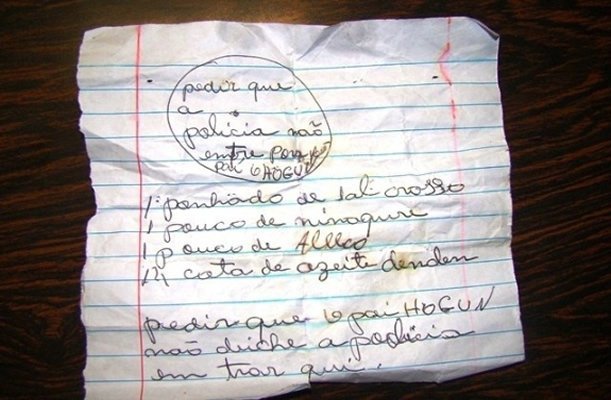 pedir que
a
policia não
entre por que
pai O HOGUN
1 ponhado de sal crosso
1 pouco de vinagre
1 pouco de
14 cota de azeite denden
pedir que o pai HOGUN
não diche a policia
em trar qui.